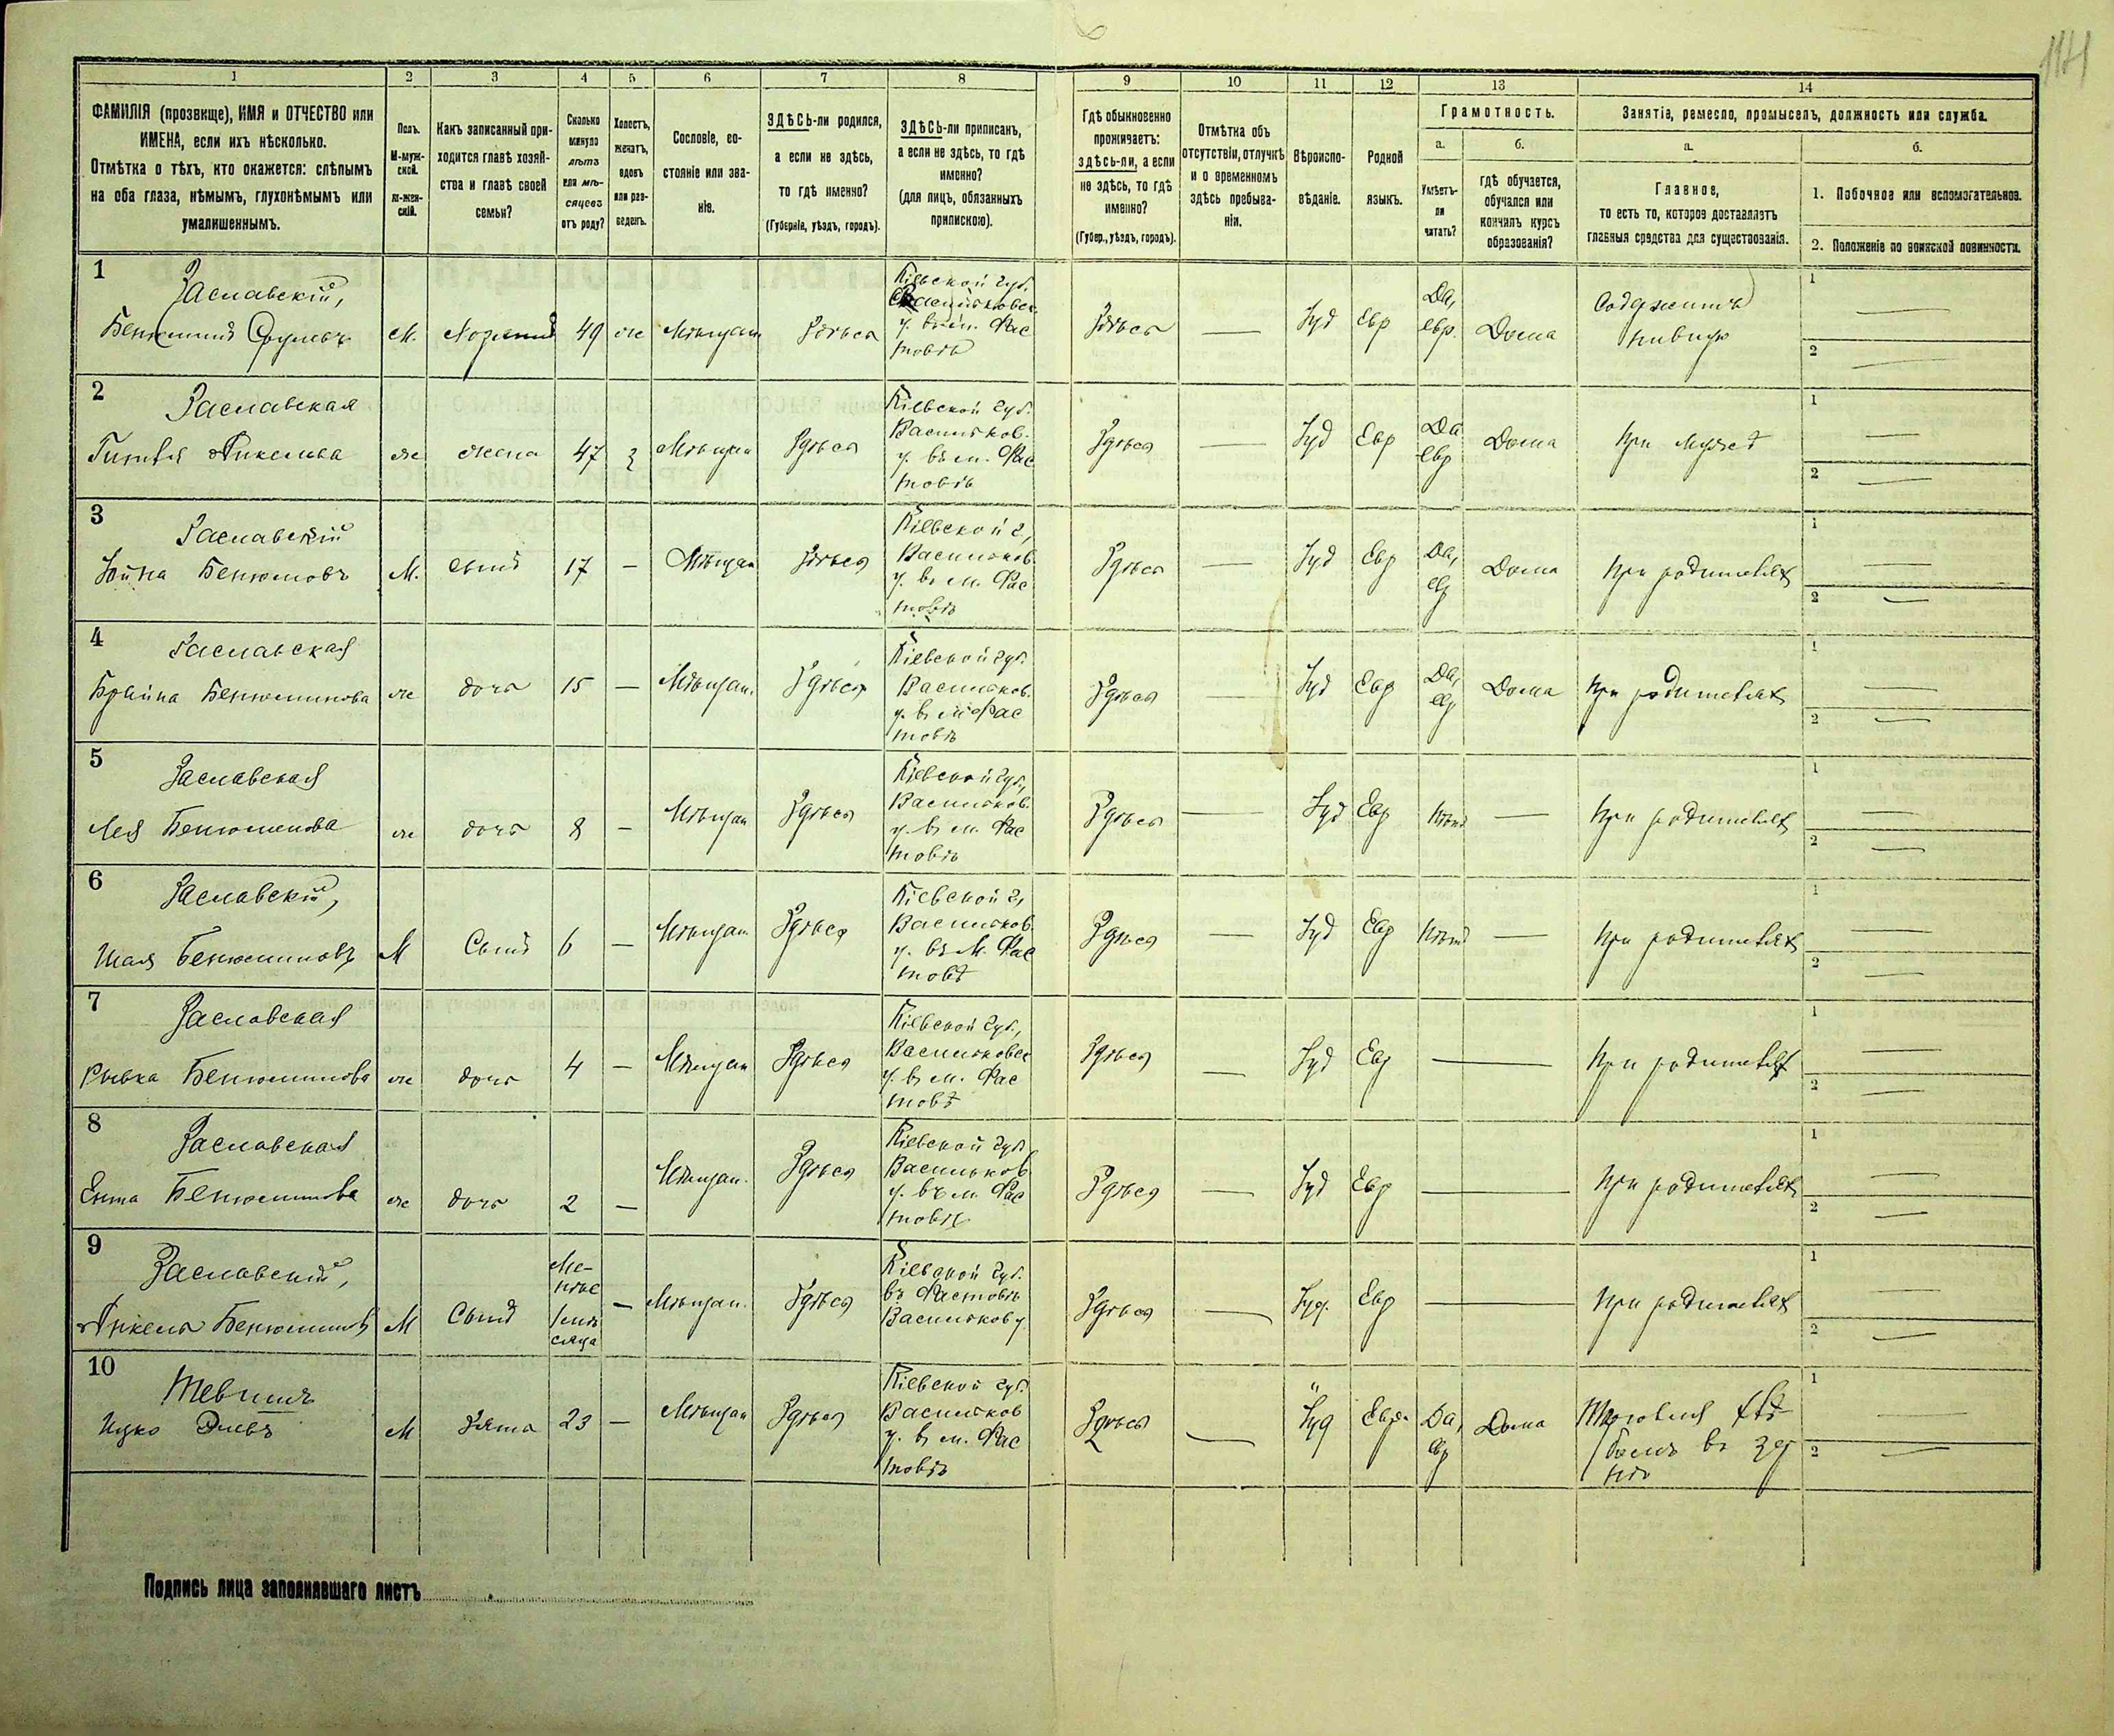 1 2 3 4 5 6 7 8 9 10 11 12 13 14
ФАМИЛІЯ (прозвище), ИМЯ и ОТЧЕСТВО или
ИМЕНА, если ихъ нѣсколько.
Отмѣтка о тѣхъ, кто окажется: слѣпымъ
на оба глаза, нѣмымъ, глухонѣмымъ или
умалишеннымъ.
Полъ.
М-муж-
ской.
ж-жен-
скій.
Какъ записанный при-
ходится главѣ хозяй-
ства и главѣ своей
семьи?
Сколько
минуло
лѣтъ
или мѣ-
сяцевъ
отъ роду?
Холостъ,
женатъ,
вдовъ
или раз-
веденъ.
Сословіе, со-
стояніе или зва-
ніе.
ЗДѢСЬ-ли родился,
а если не здѣсь,
то гдѣ именно?
(Губернія, уѣздъ, городъ).
ЗДѢСЬ-ли приписанъ,
а если не здѣсь, то гдѣ
именно?
(для лицъ, обязанныхъ
припискою).
Гдѣ обыкновенно
проживаетъ:
здѣсь-ли, а если
не здѣсь, то гдѣ
именно?
(Губер., уѣздъ, городъ).
Отмѣтка объ
отсутствіи, отлучкѣ
и о временномъ
здѣсь пребыва-
ніи.
Вѣроиспо-
вѣданіе.
Родной
языкъ.
Грамотность.
а.
Умѣетъ-
ли
читать?
б.
гдѣ обучается,
обучался или
кончилъ курсъ
образованія?
Занятіе, ремесло, промыселъ, должность или служба.
а.
Главное,
то есть то, которое доставляетъ
главныя средства для существованія.
б.
1. Побочное или вспомогательное.
2. Положеніе по воинской повинности.
1
Заславскій,
М. 49 ж Мѣщан Здѣсь
Кіевской губ.
у. въ м. Фас
товѣ
Здѣсь — Іуд Евр Да,
евр. Дома
1 —
2 —
2
Заславская
же жена 47 з Мѣщан Здѣсь
Кіевской губ.
Васильков.
у. въ м. Фас
товѣ
Здѣсь — Іуд Евр Да
евр Дома При мужѣ
1 —
2 —
3
Заславскій
М. сынъ 17 — Мѣщан Здѣсь
Кіевской г,
Васильков.
у. въ м. Фас
товѣ
Здѣсь — Іуд Евр Да,
евр Дома При родителяхъ
1 —
2 —
4
Заславская
Брайна Бенюминова же дочь 15 — Мѣщан. Здѣсь
Кіевской губ.
Васильков.
у. въ м. Фас
товѣ
Здѣсь — Іуд Евр Да,
евр Дома При родителяхъ
1 —
2 —
5
Заславская
Лея Бенюминова же дочь 8 — Мѣщан Здѣсь
Кіевской губ.,
Васильков.
у. въ м. Фас
товѣ
Здѣсь — Іуд Евр Нѣтъ — При родителяхъ
1 —
2 —
6
Заславскій,
Шая Бенюминовъ М Сынъ 6 — Мѣщан Здѣсь
Кіевской г,
Васильков.
у. въ М. Фас
товѣ
Здѣсь — Іуд Евр Нѣтъ — При родителяхъ
1 —
2 —
7
Заславская
Рывка Бенюминова же дочь 4 — Мѣщан Здѣсь
Кіевской губ.,
Васильковск
у. въ м. Фас
товѣ
Здѣсь — Іуд Евр — При родителяхъ
1 —
2 —
8
Заславская
Ента Бенюминова же дочь 2 — Мѣщан. Здѣсь
Кіевской губ.
Васильков
у. въ м. Фас
товѣ
Здѣсь — Іуд Евр — При родителяхъ
1 —
2 —
9
Заславскій,
Анкель Бенюминъ М Сынъ Ме-
нѣе
1 мѣ
сяца — Мѣщан. Здѣсь
Кіевской губ.
въ Фастовѣ
Васильков у
Здѣсь — Іуд. Евр — При родителяхъ
1 —
2 —
10
Ицко М Зять 23 — Мѣщан Здѣсь
Кіевской губ.
Васильков
у. въ м. Фас
товѣ
Здѣсь — Іуд Евр. Да,
евр Дома Торговля
1 —
2 —
Подпись лица заполнявшаго листъ